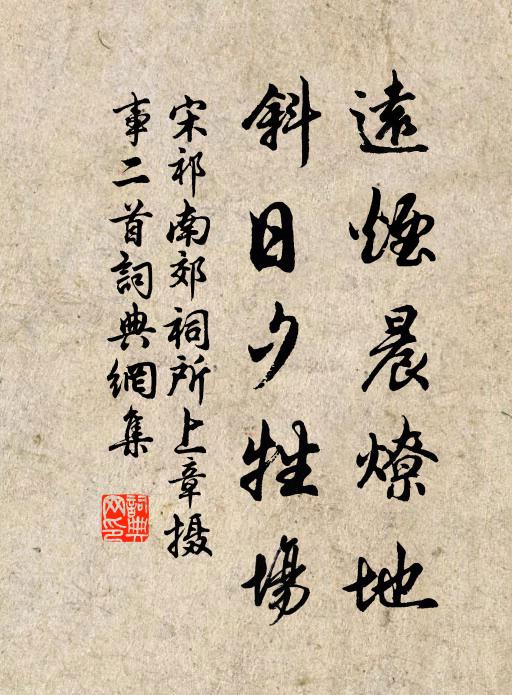 遠煙晨燎地
斜日夕牲場
宋祁南郊祠所上章摄
事二首詞典網集
詞典
网印